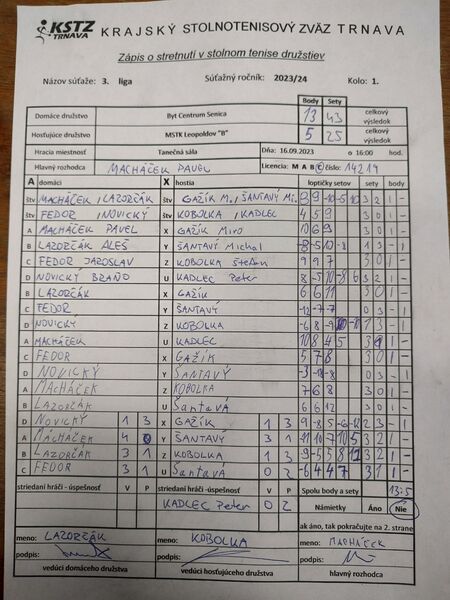 KSTZ TRNAVA KRAJSKÝ STOLNOTENISOVÝ ZVÄZ TRNAVA
Zápis o stretnutí v stolnom tenise družstiev
Názov súťaže: 3. liga Súťažný ročník: 2023/24 Kolo: 1.
Body Sety
Domáce družstvo Byt Centrum Senica 13 43 celkový výsledok
Hosťujúce družstvo MSTK Leopoldov "B" 5 25 celkový výsledok
Hracia miestnosť Tanečná sála Dňa: 16.09.2023 o 16:00 hod.
Hlavný rozhodca MACHÁČEK PAVEL Licencia: M A B C číslo: 14219
A domáci X hostia loptičky setov sety body
štv MACHÁČEK / LAZORČÁK štv GAŽÍK M., ŠANTAVÝ Mi. 9 -10 -5 10 3 2 1 -
štv FEDOR / NOVICKÝ štv KOBOLKA, KADLEC 4 5 9 3 0 1 -
A MACHÁČEK PAVEL X GAŽÍK Miro 10 6 9 3 0 1 -
B LAZORČÁK ALEŠ Y ŠANTAVÝ Michal -8 -5 10 -8 1 3 - 1
C FEDOR JAROSLAV Z KOBOLKA Štefan 9 9 7 3 0 1 -
D NOVICKÝ BRAŇO U KADLEC Peter -8 -5 10 -8 6 3 2 1 -
B LAZORČÁK X GAŽÍK 6 6 11 3 0 1 -
C FEDOR Y ŠANTAVÝ -12 -7 -7 0 3 - 1
D NOVICKÝ Z KOBOLKA -6 8 -9 -10 1 3 - 1
A MACHÁČEK U KADLEC 10 8 4 5 3 1 1 -
C FEDOR X GAŽÍK 5 7 6 3 0 1 -
D NOVICKÝ Y ŠANTAVÝ -3 -18 -8 0 3 - 1
A MACHÁČEK Z KOBOLKA 7 6 8 3 0 1 -
B LAZORČÁK U Šantavá 6 6 12 3 0 1 -
D NOVICKÝ 1 3 X GAŽÍK 1 3 9 -8 -5 -6 -12 2 3 - 1
A MACHÁČEK 4 0 Y ŠANTAVÝ 3 1 -11 10 -7 10 5 3 2 1 -
B LAZORČÁK 3 1 Z KOBOLKA 1 3 9 -5 5 8 12 3 2 1 -
C FEDOR 3 1 U Šantavá 0 2 -6 4 4 7 3 1 1 -
striedaní hráči - úspešnosť V P striedaní hráči - úspešnosť V P Spolu body a sety 13:5
KADLEC Peter 0 2 Námietky Áno Nie
ak áno, tak pokračujte na 2. strane
meno: LAZORČÁK meno: KOBOLKA meno: MACHÁČEK
podpis: podpis: podpis:
vedúci domáceho družstva vedúci hosťujúceho družstva hlavný rozhodca